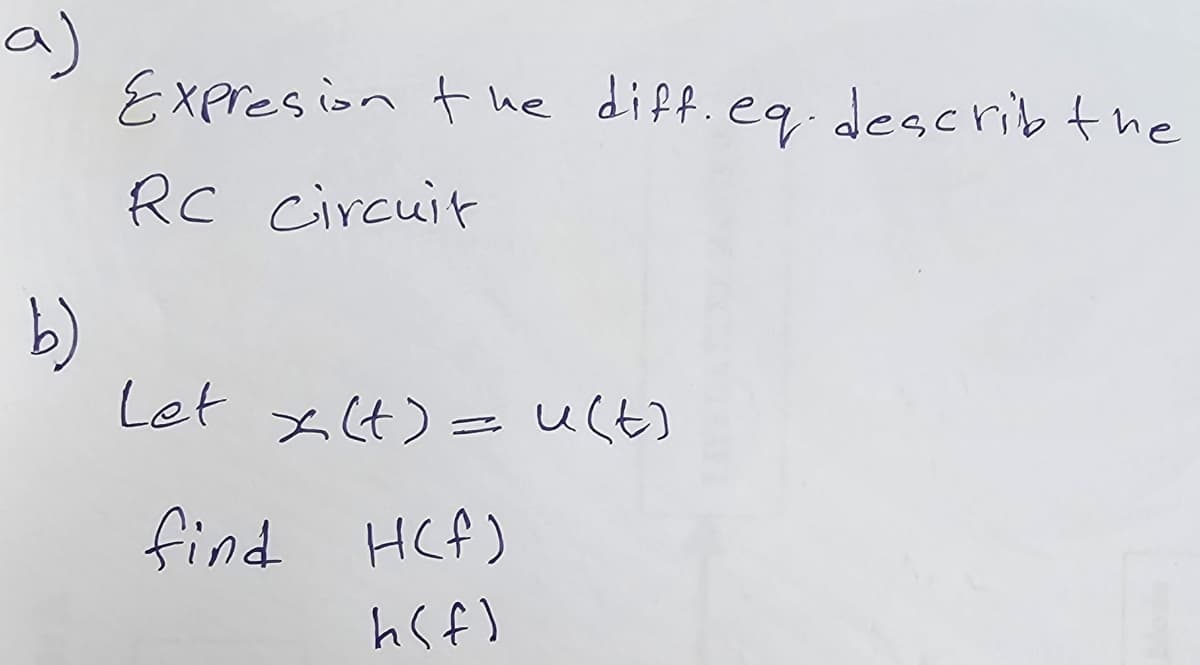 a)
Expresion the diff. eq. describ the
RC circuit
b)
Let x(t) = u(t)
find H(f)
h(f)